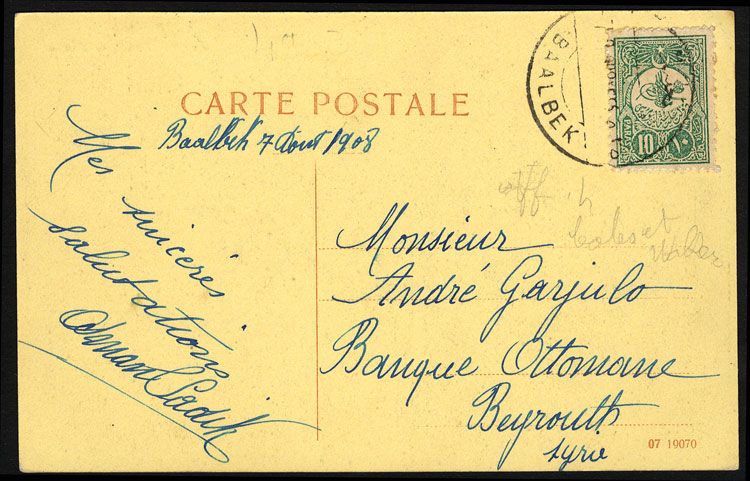 CARTE POSTALE
BAALBEK
10 PARAS ١٠
Baalbek 7 Aout 1908
Mes sincères
salutations
Osman Sadik
Monsieur
André Garjulo
Banque Ottomane
Beyrouth
Syrie
07 19070